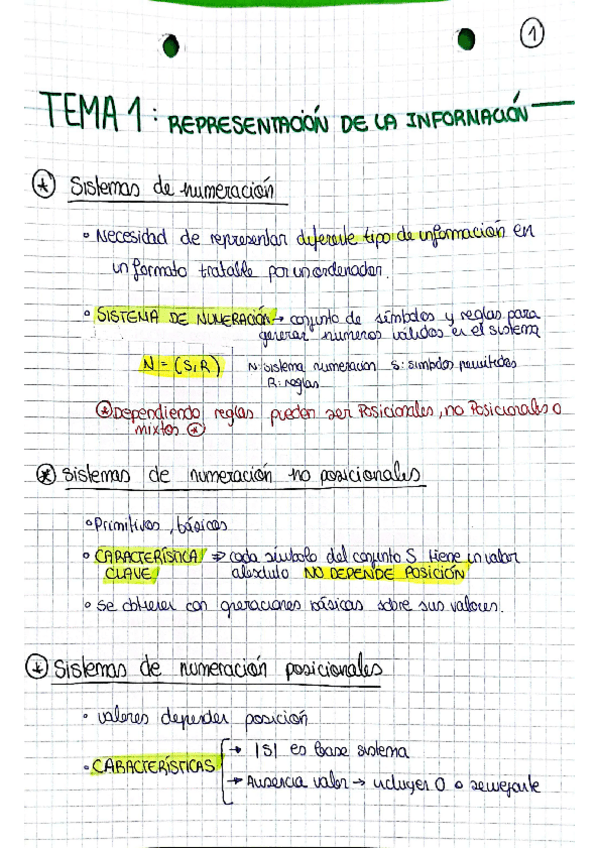 1
TEMA 1: REPRESENTACIÓN DE LA INFORMACIÓN
* Sistemas de numeración
◦ Necesidad de representar diferente tipo de información en
un formato tratable por un ordenador.
◦ SISTEMA DE NUMERACIÓN → conjunto de símbolos y reglas para
generar números válidos en el sistema
N = (S,R) N: sistema numeracion S: simbolos permitidos
R: reglas
* Dependiendo reglas pueden ser Posicionales, no Posicionales o
mixtos *
* Sistemas de numeración no posicionales
◦ Primitivos, básicos
◦ CARACTERÍSTICA ⇒ cada símbolo del conjunto S tiene un valor
CLAVE absoluto NO DEPENDE POSICIÓN
◦ Se obtienen con operaciones básicas sobre sus valores.
* Sistemas de numeración posicionales
◦ valores dependen posición
◦ CARACTERÍSTICAS → |S| es base sistema
→ Ausencia valor → incluyen 0 o semejante